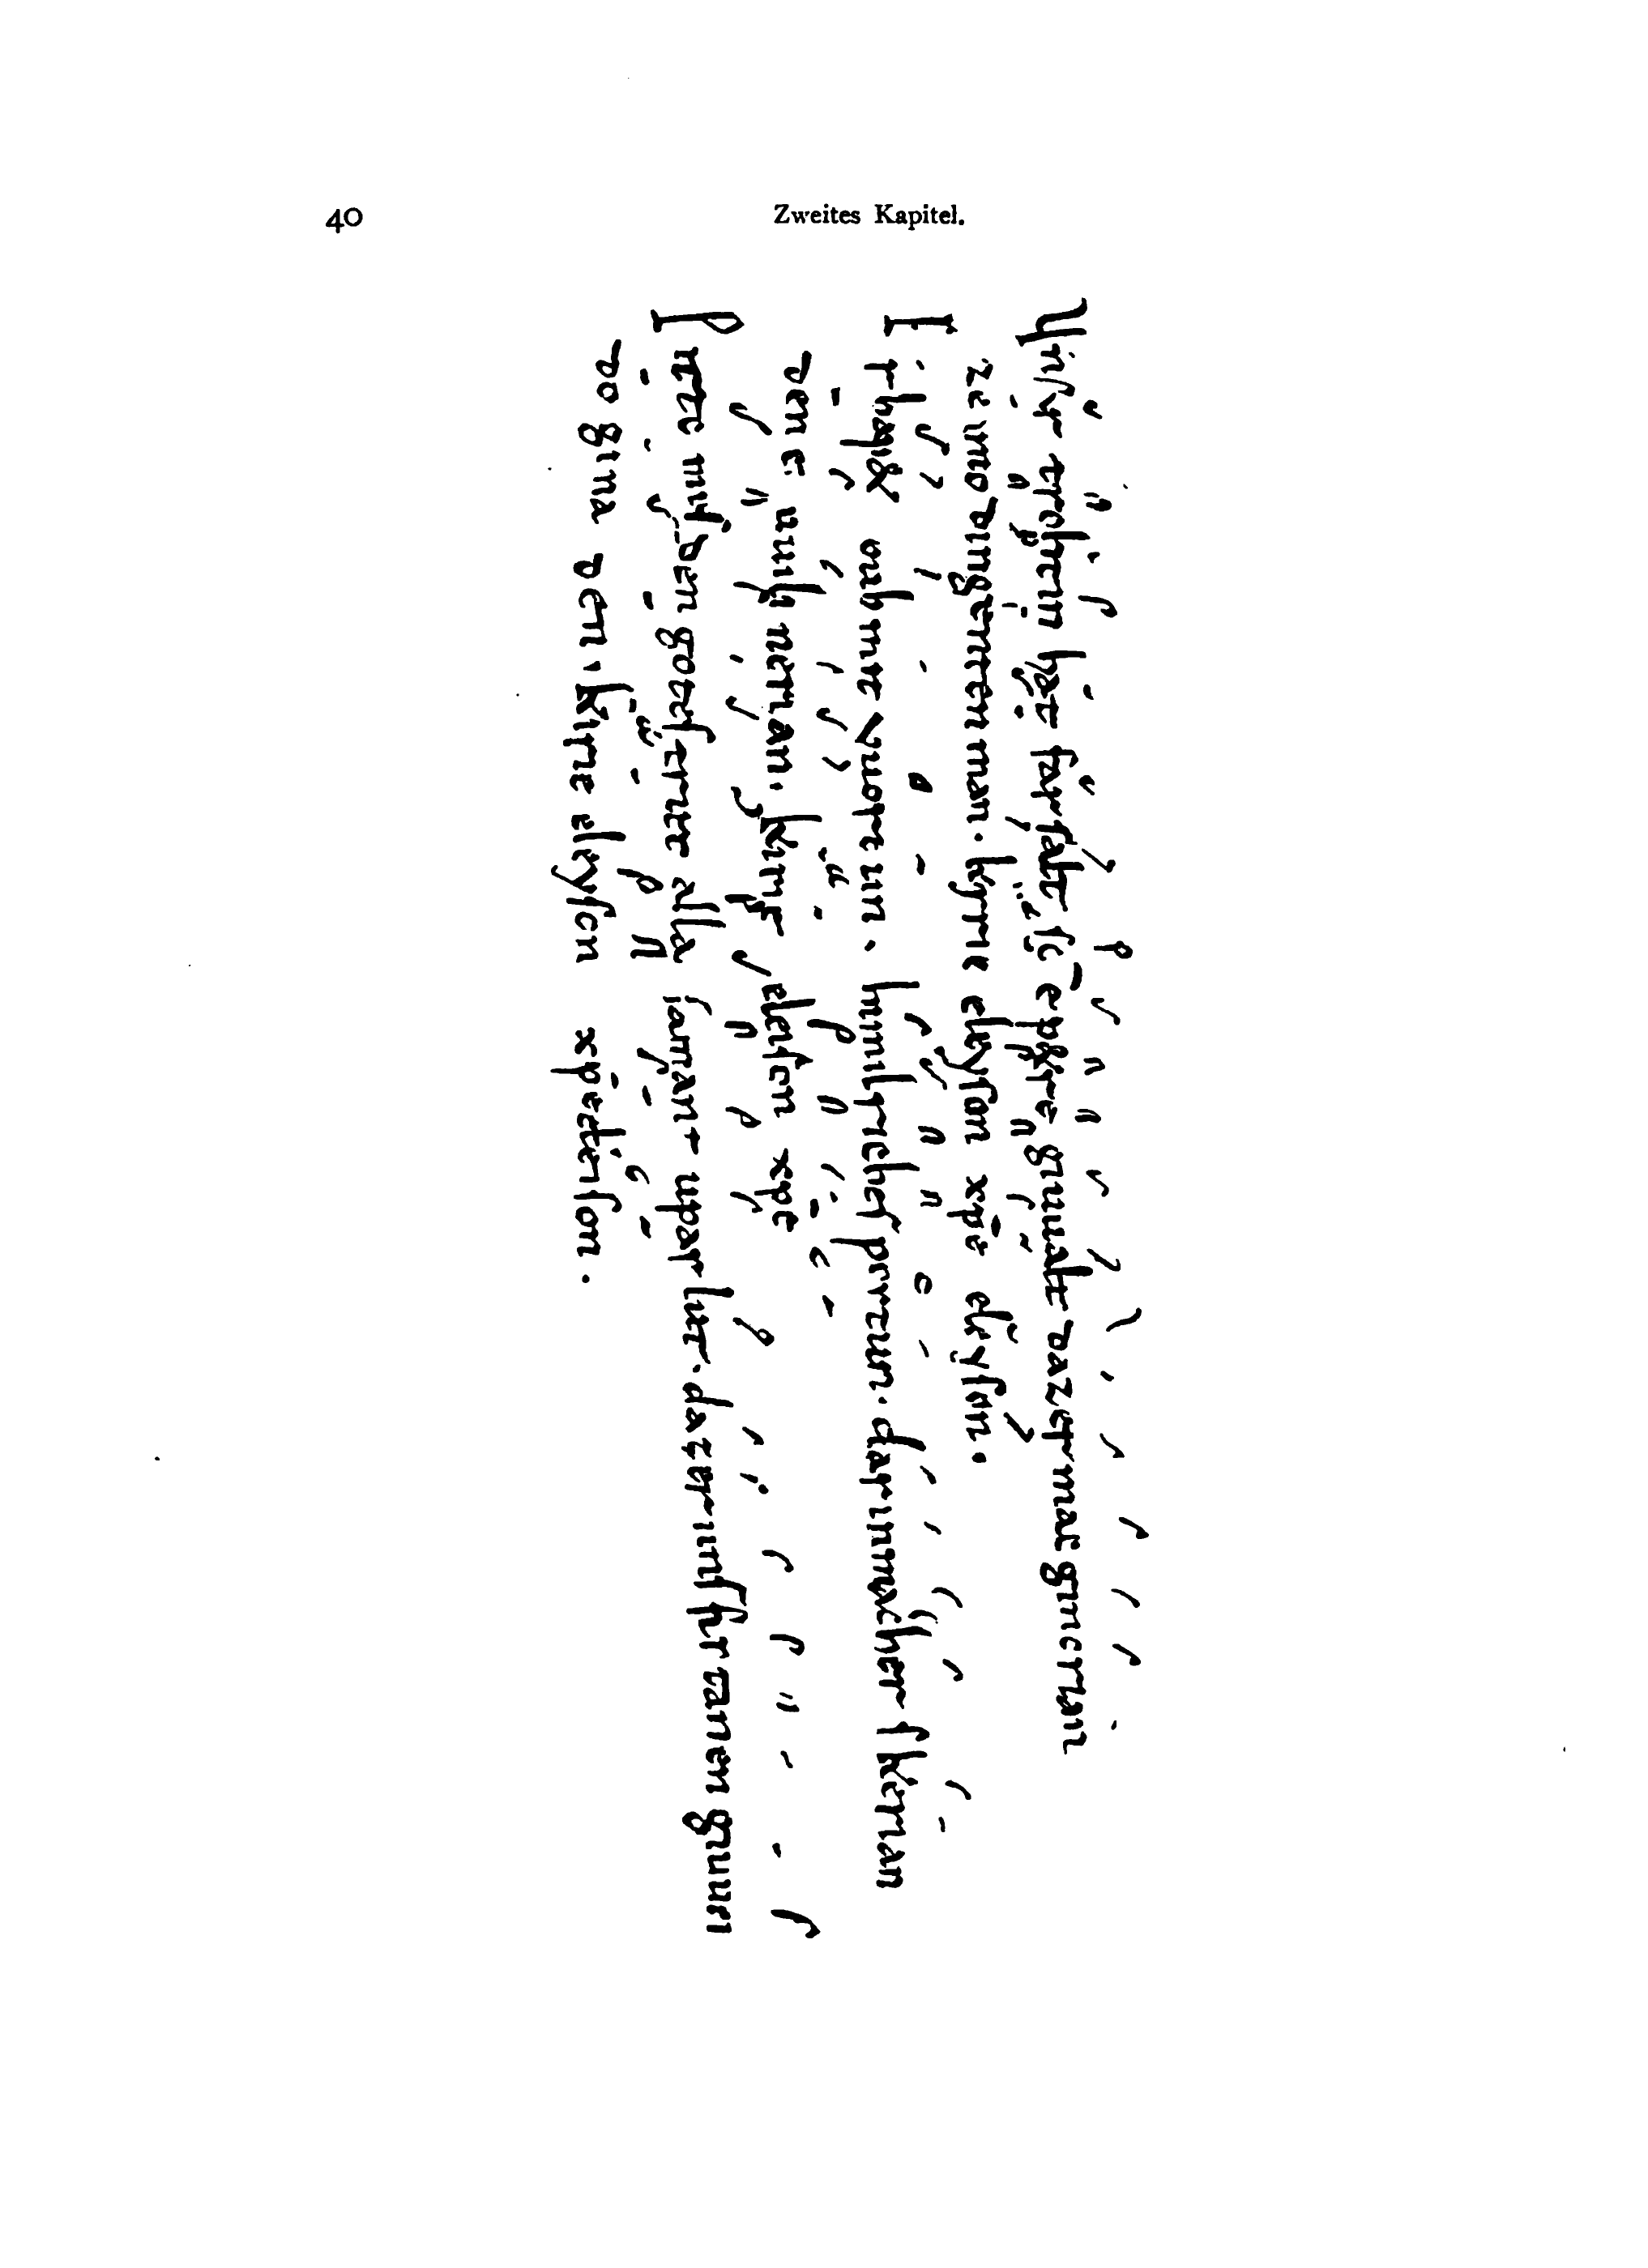 40
Zweites Kapitel.
Unsar trohtin hat farsalt sc̄e petre giuualt daz er mac ginerian
ze imo dingenten man. kyrie eleyson xp̄e eleyson.
Er hapet ouh mit vuortun. himilriches portun. dar in mach er skerian
den er uuili nerian. kirie eleison xpe
Pittemes den gotes trut alla samant upar lut. daz er uns firtanen giuuer
do ginaden. kirie eleyson xp̄e eleison.